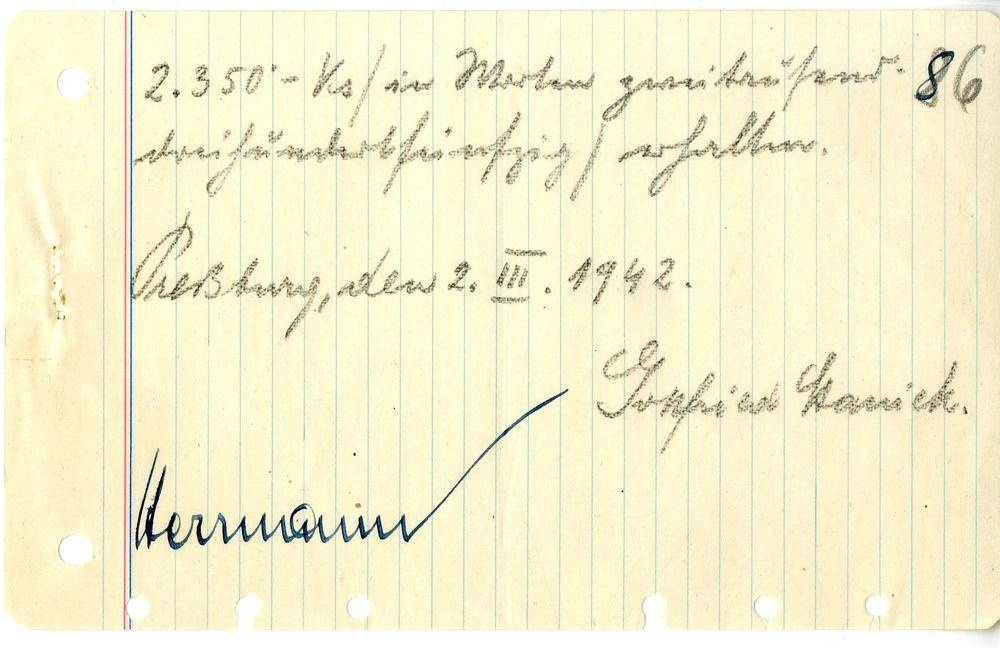 2.350.- Ks/ in Worten zweitausend- 86
dreihundertfünfzig/ erhalten.
Preßburg, den 2. III. 1942.
Gottfried
Herrmann